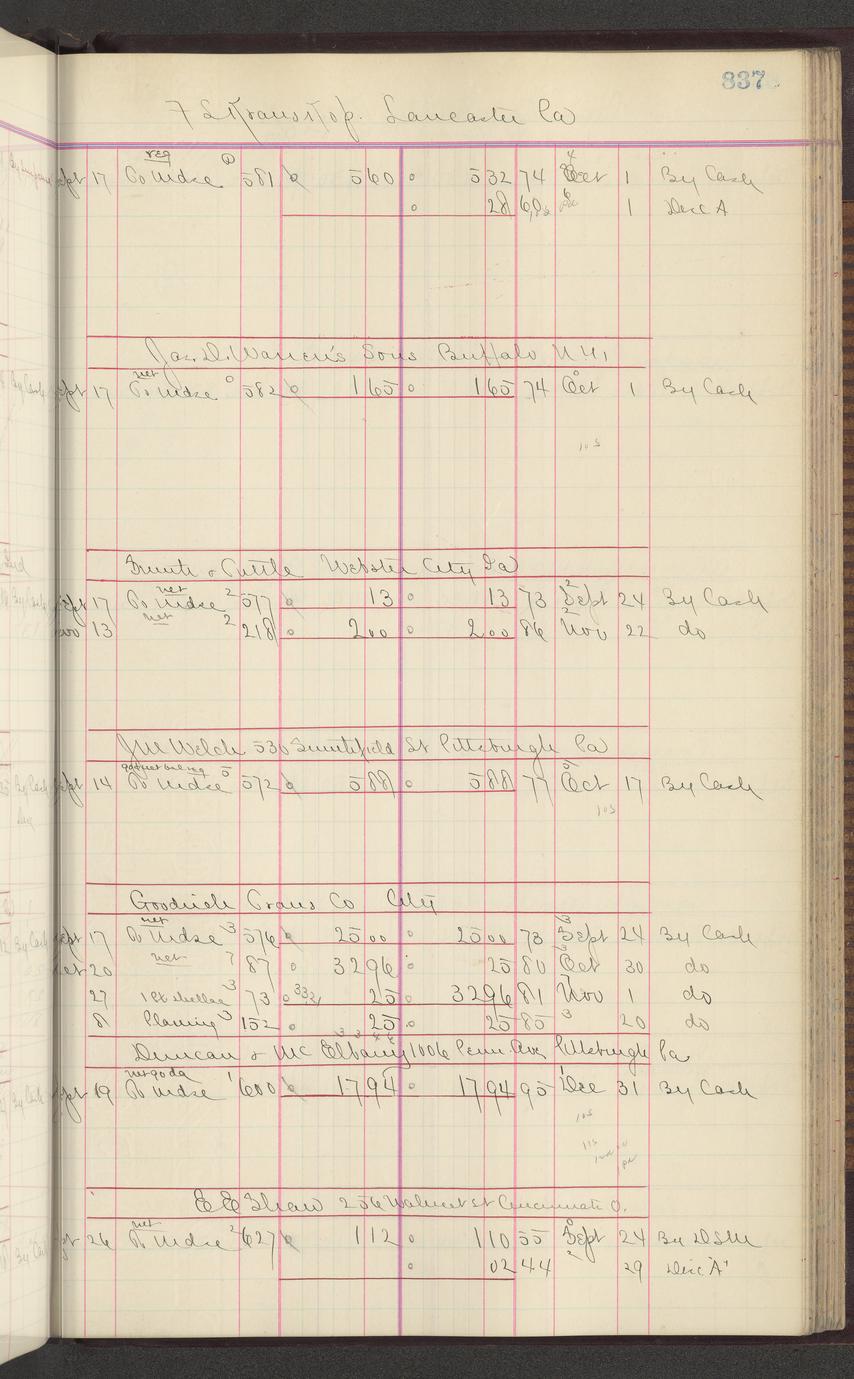 837
Lancaster Pa
Sept 17 To Mdse 581 560 532 74 Oct 1 By Cash
28 1 Disc A
Jas. D. Warren's Sons Buffalo N.Y.
Sept 17 net To Mdse 582 165 165 74 Oct 1 By Cash
10 5
Tuttle Webster City Ia
Sept 17 net To Mdse 2 577 13 13 73 Sept 24 By Cash
Nov 13 net 2 218 200 200 86 Nov 22 do
J W Welch 530 Smithfield St Pittsburgh Pa
Sept 14 To Mdse 5 572 588 588 77 Oct 17 By Cash
Goodrich Trans Co City
Sept 17 net To Mdse 3 576 2500 2500 73 Sept 24 By Cash
Oct 20 net 7 87 3296 25 80 Oct 30 do
27 3 73 25 3296 81 Nov 1 do
8 Planing 3 152 25 25 85 20 do
Duncan & Mc 1006 Penn Ave Pittsburgh Pa
Sept 19 net 90 da To Mdse 1 600 1794 1794 95 Dec 31 By Cash
E E Shaw 256 Walnut St Cincinnati O.
Sept 26 net To Mdse 2 627 112 110 55 Sept 24 By DSM
02 44 29 Disc "A"